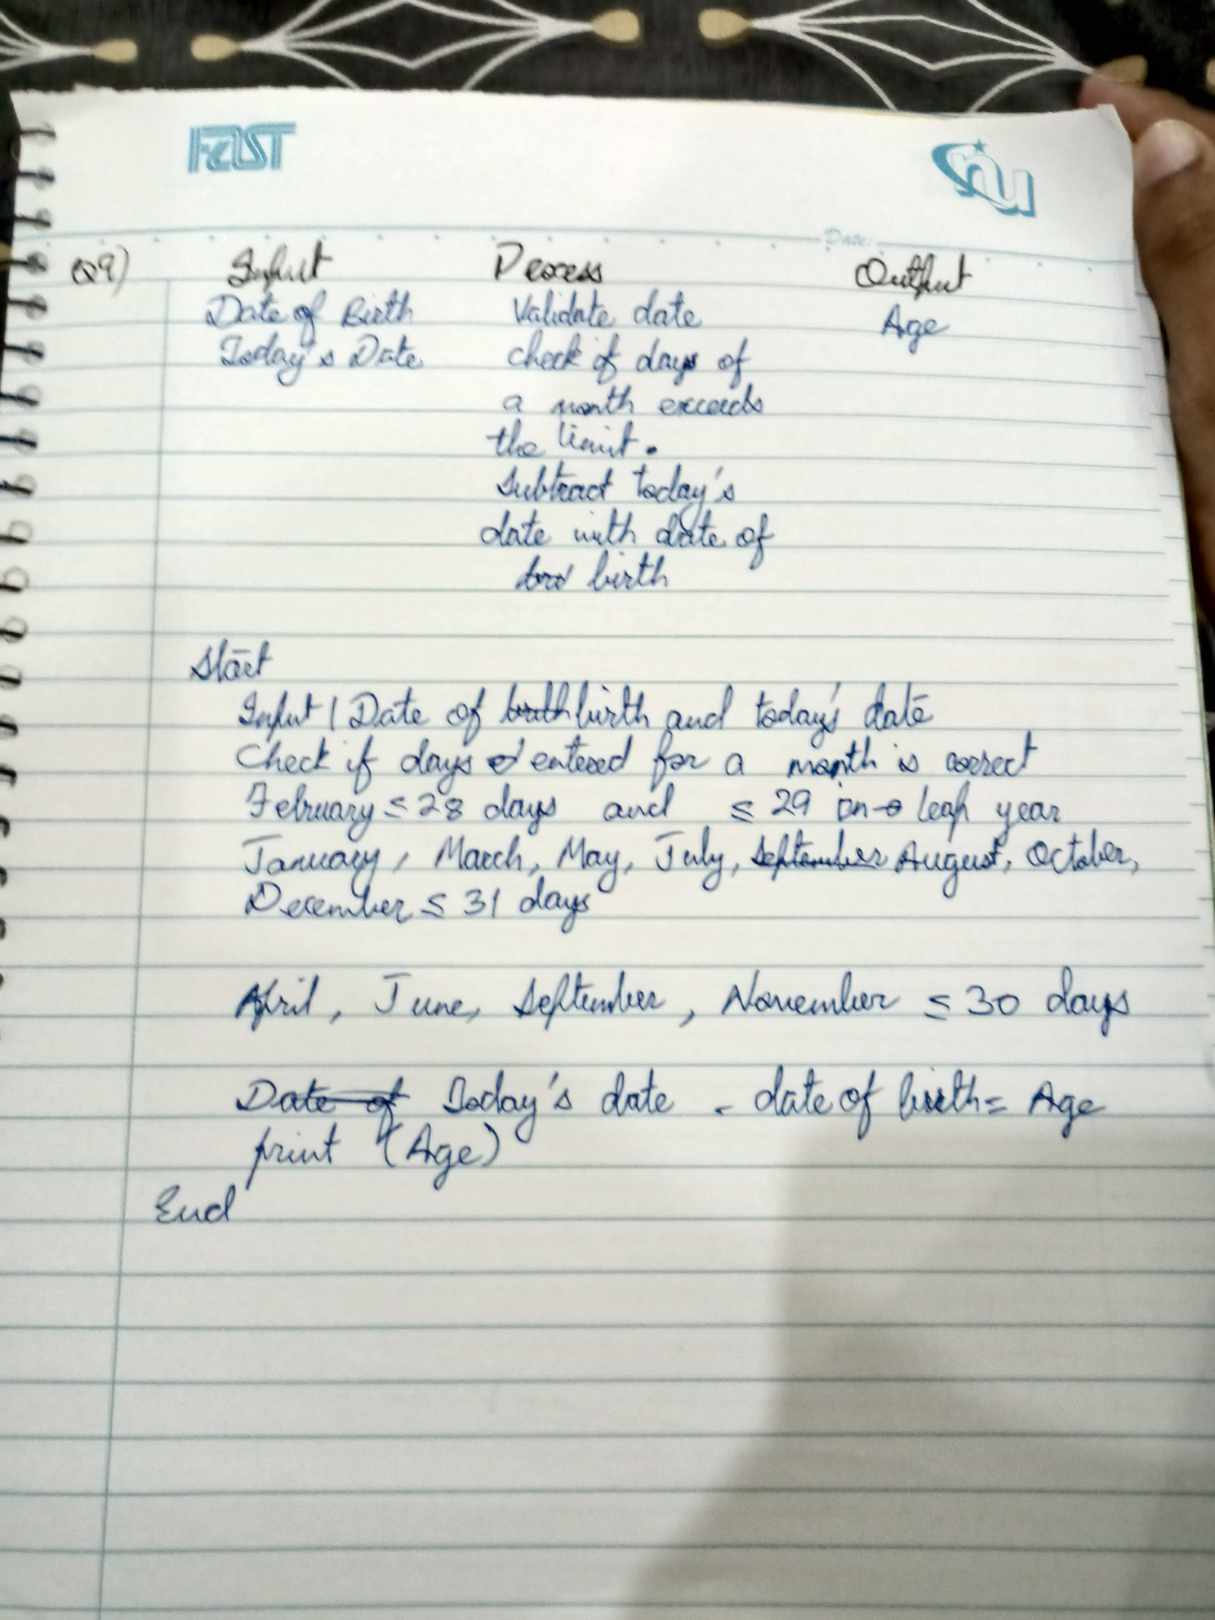 FAST nu
Date:
Q9) Input Process Output
Date of Birth Validate date Age
Today's Date check if days of
a month exceeds
the limit.
Subtract today's
date with date of
birth
Start
Input | Date of birth birth and today's date
Check if days entered for a month is correct
February ≤ 28 days and ≤ 29 on leap year
January, March, May, July, September August, October,
December ≤ 31 days
April, June, September, November ≤ 30 days
Date of Today's date - date of birth = Age
print (Age)
End